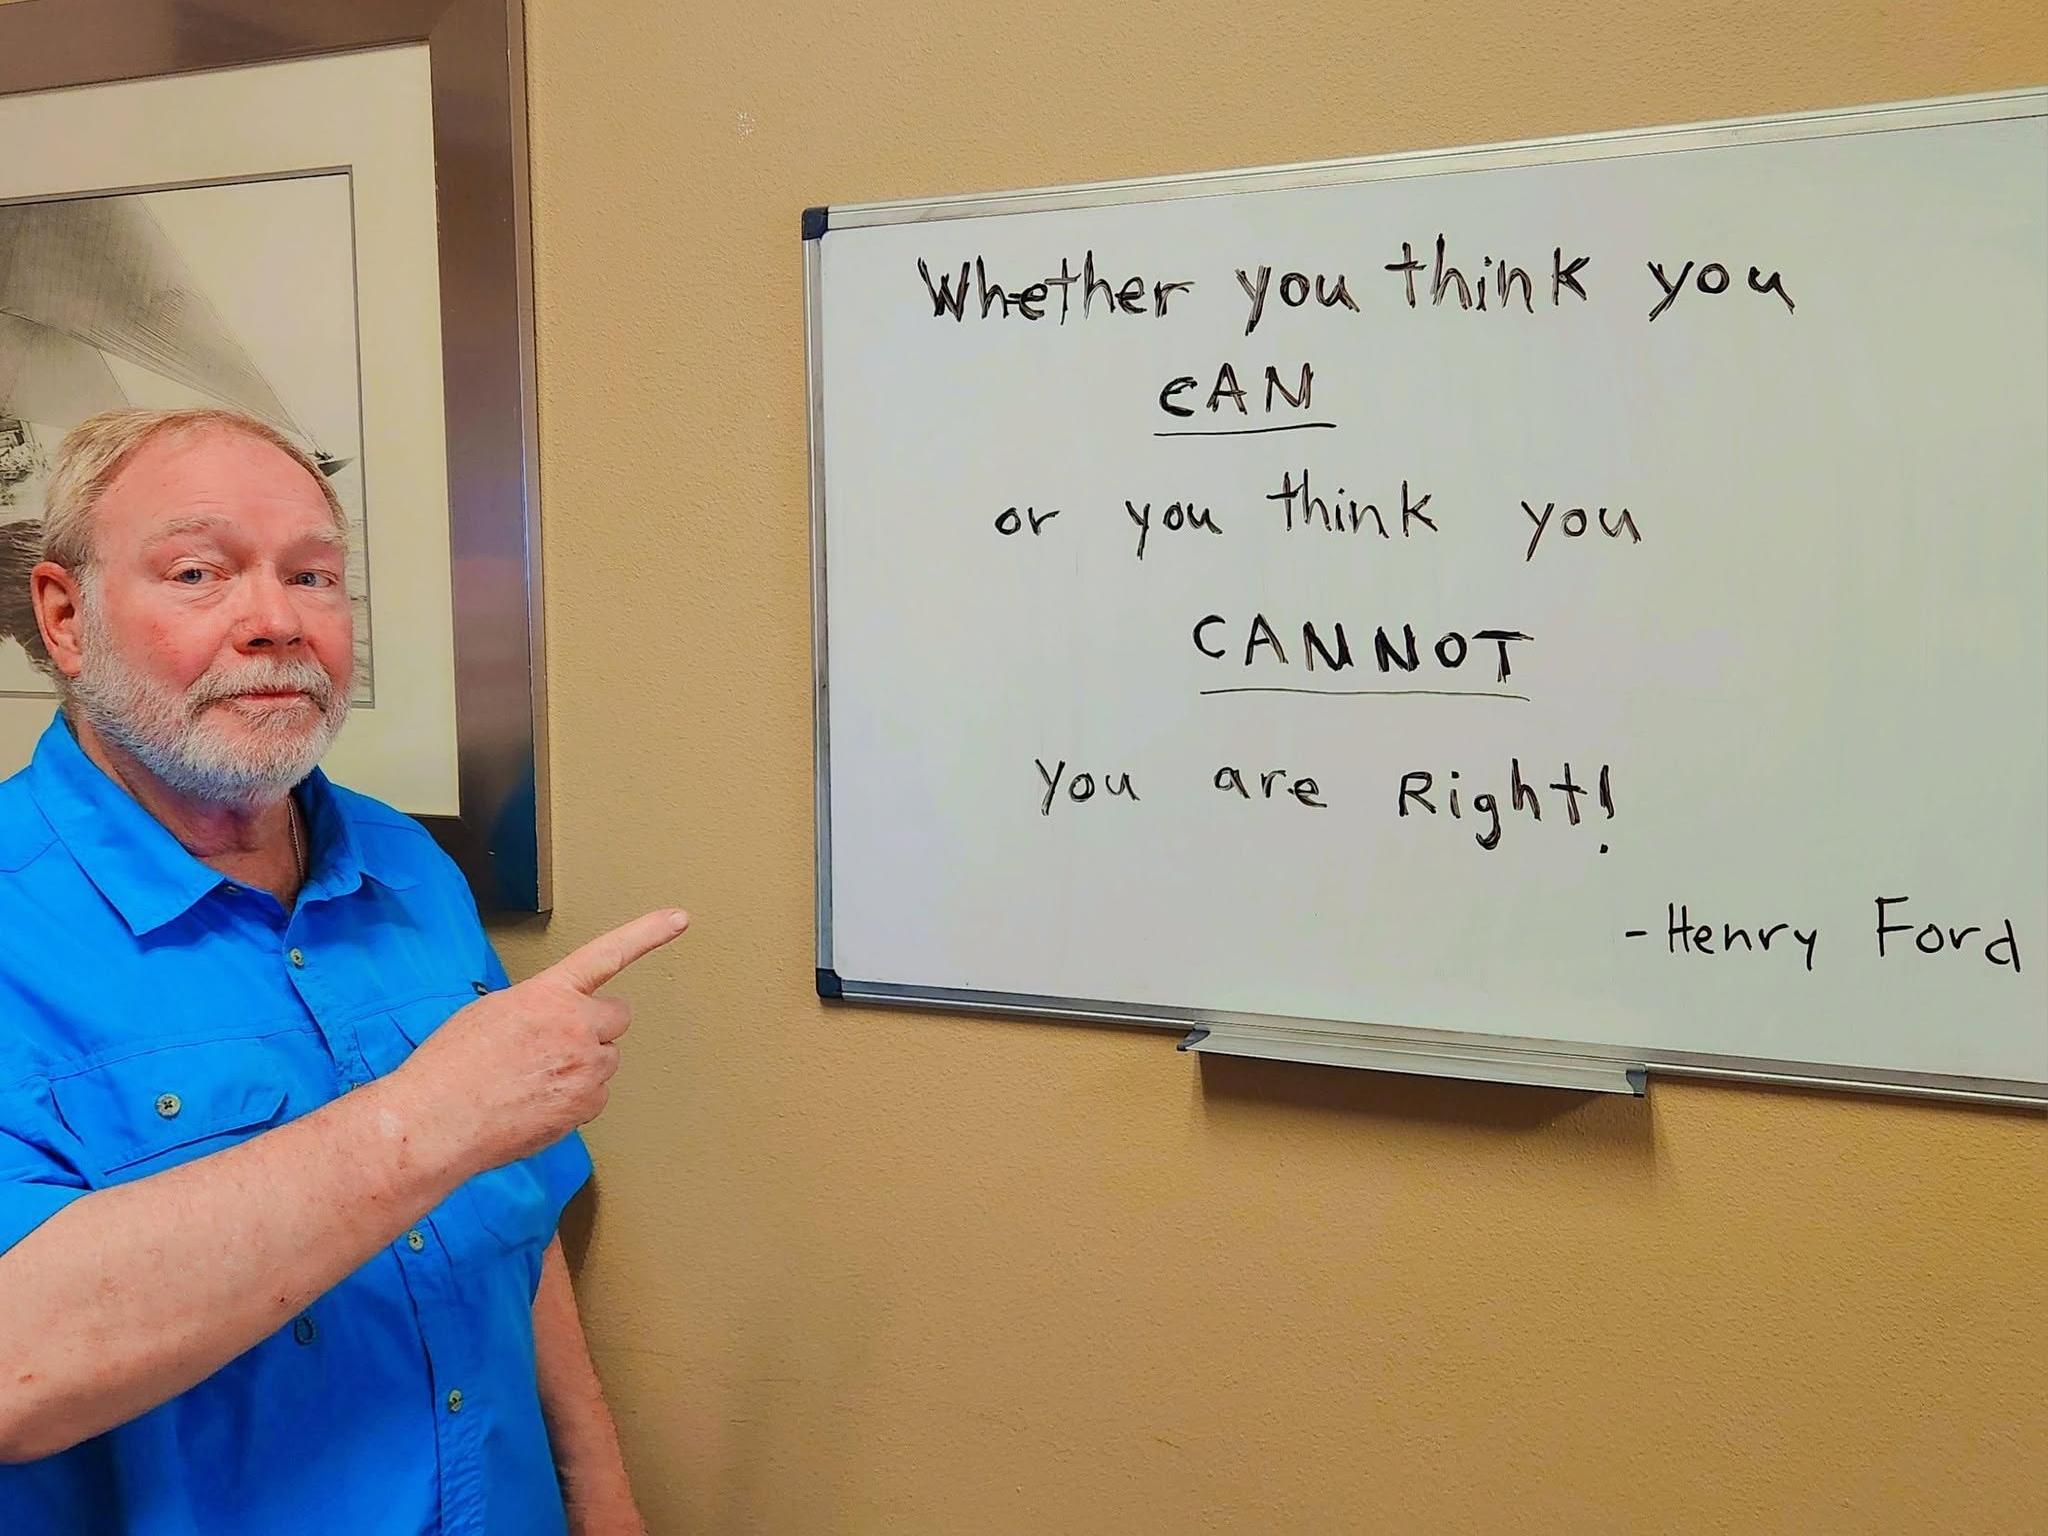 Whether you think you
CAN
or you think you
CANNOT
you are Right!
-Henry Ford